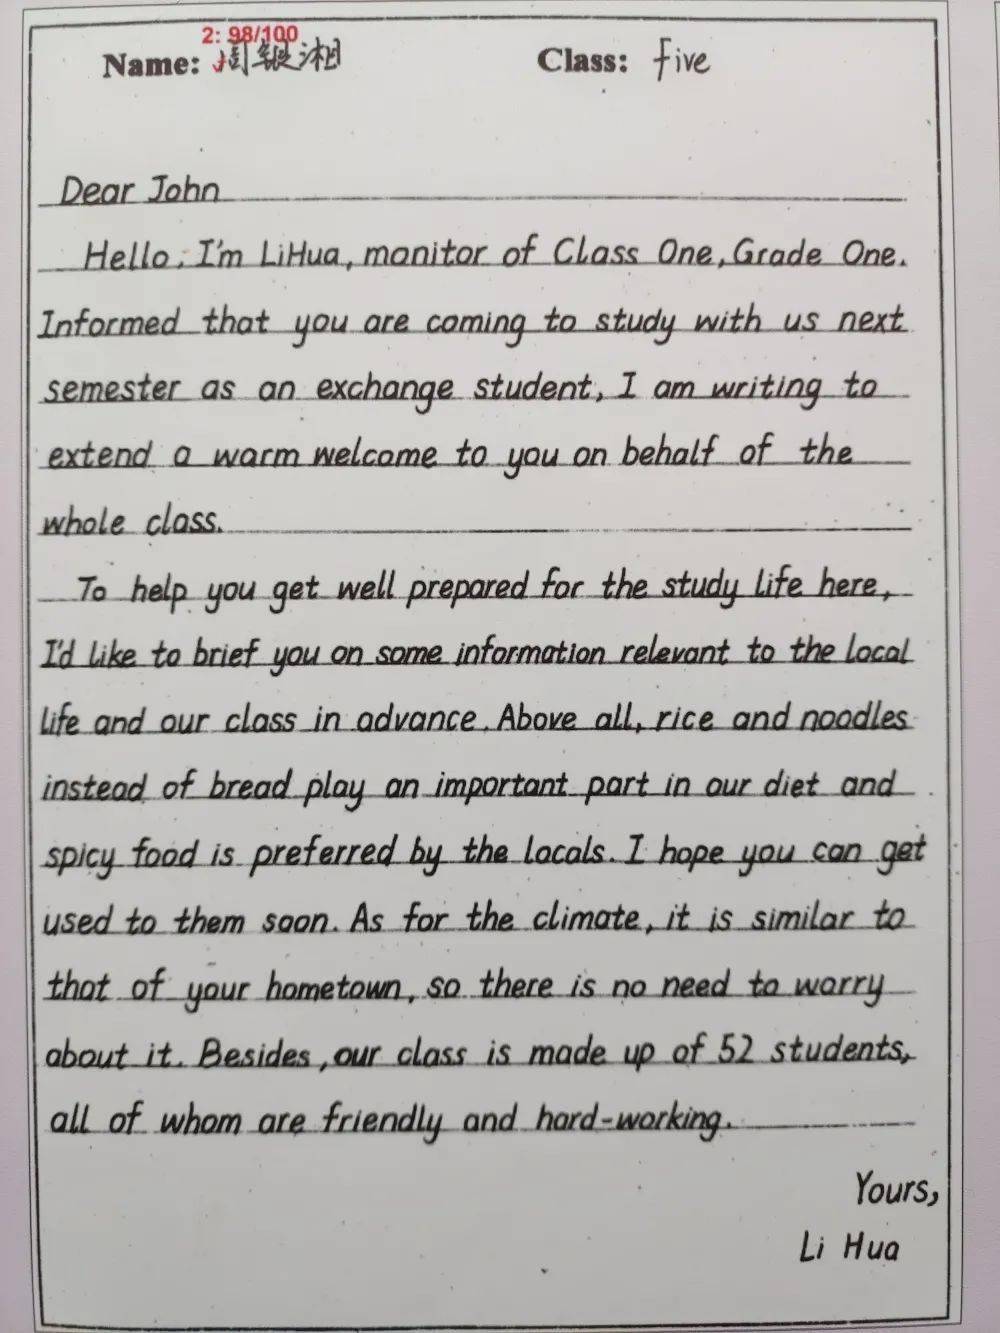 2: 98/100
Name: 周银湘 Class: Five
Dear John
Hello, I'm LiHua, monitor of Class One, Grade One.
Informed that you are coming to study with us next
semester as an exchange student, I am writing to
extend a warm welcome to you on behalf of the
whole class.
To help you get well prepared for the study life here,
I'd like to brief you on some information relevant to the local
life and our class in advance. Above all, rice and noodles
instead of bread play an important part in our diet and
spicy food is preferred by the locals. I hope you can get
used to them soon. As for the climate, it is similar to
that of your hometown, so there is no need to worry
about it. Besides, our class is made up of 52 students,
all of whom are friendly and hard-working.
Yours,
Li Hua